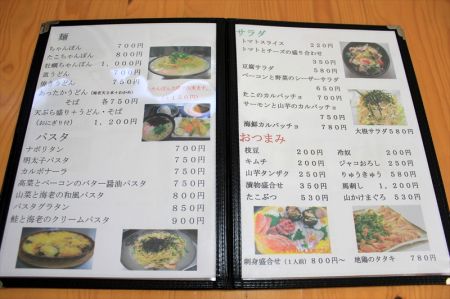 麺
ちゃんぽん 700円
たこちゃんぽん 800円
牡蠣ちゃんぽん 1,000円
皿うどん 700円
焼きうどん 750円
あったかうどん
そば 各750円
天ぷら盛りうどん・そば
(おにぎり付) 1,200円
パスタ
ナポリタン 700円
明太子パスタ 750円
カルボナーラ 750円
高菜とベーコンのバター醤油パスタ 750円
山菜と海老の和風パスタ 800円
パスタグラタン 850円
鮭と海老のクリームパスタ 900円
サラダ
トマトスライス 220円
トマトとチーズの盛り合わせ
350円
豆腐サラダ 580円
ベーコンと野菜のシーザーサラダ
680円
たこのカルパッチョ 680円
サーモンと山芋のカルパッチョ
780円
海鮮カルパッチョ
大根サラダ 580円
おつまみ
枝豆 300円
冷奴 300円
キムチ 300円
ジャコおろし 350円
山芋タンザク 350円
りゅうきゅう 580円
漬物盛合せ 350円
馬刺し 1,100円
たこぶつ 530円
山かけまぐろ 580円
刺身盛合せ (1人前) 800円~
地鶏のタタキ 780円